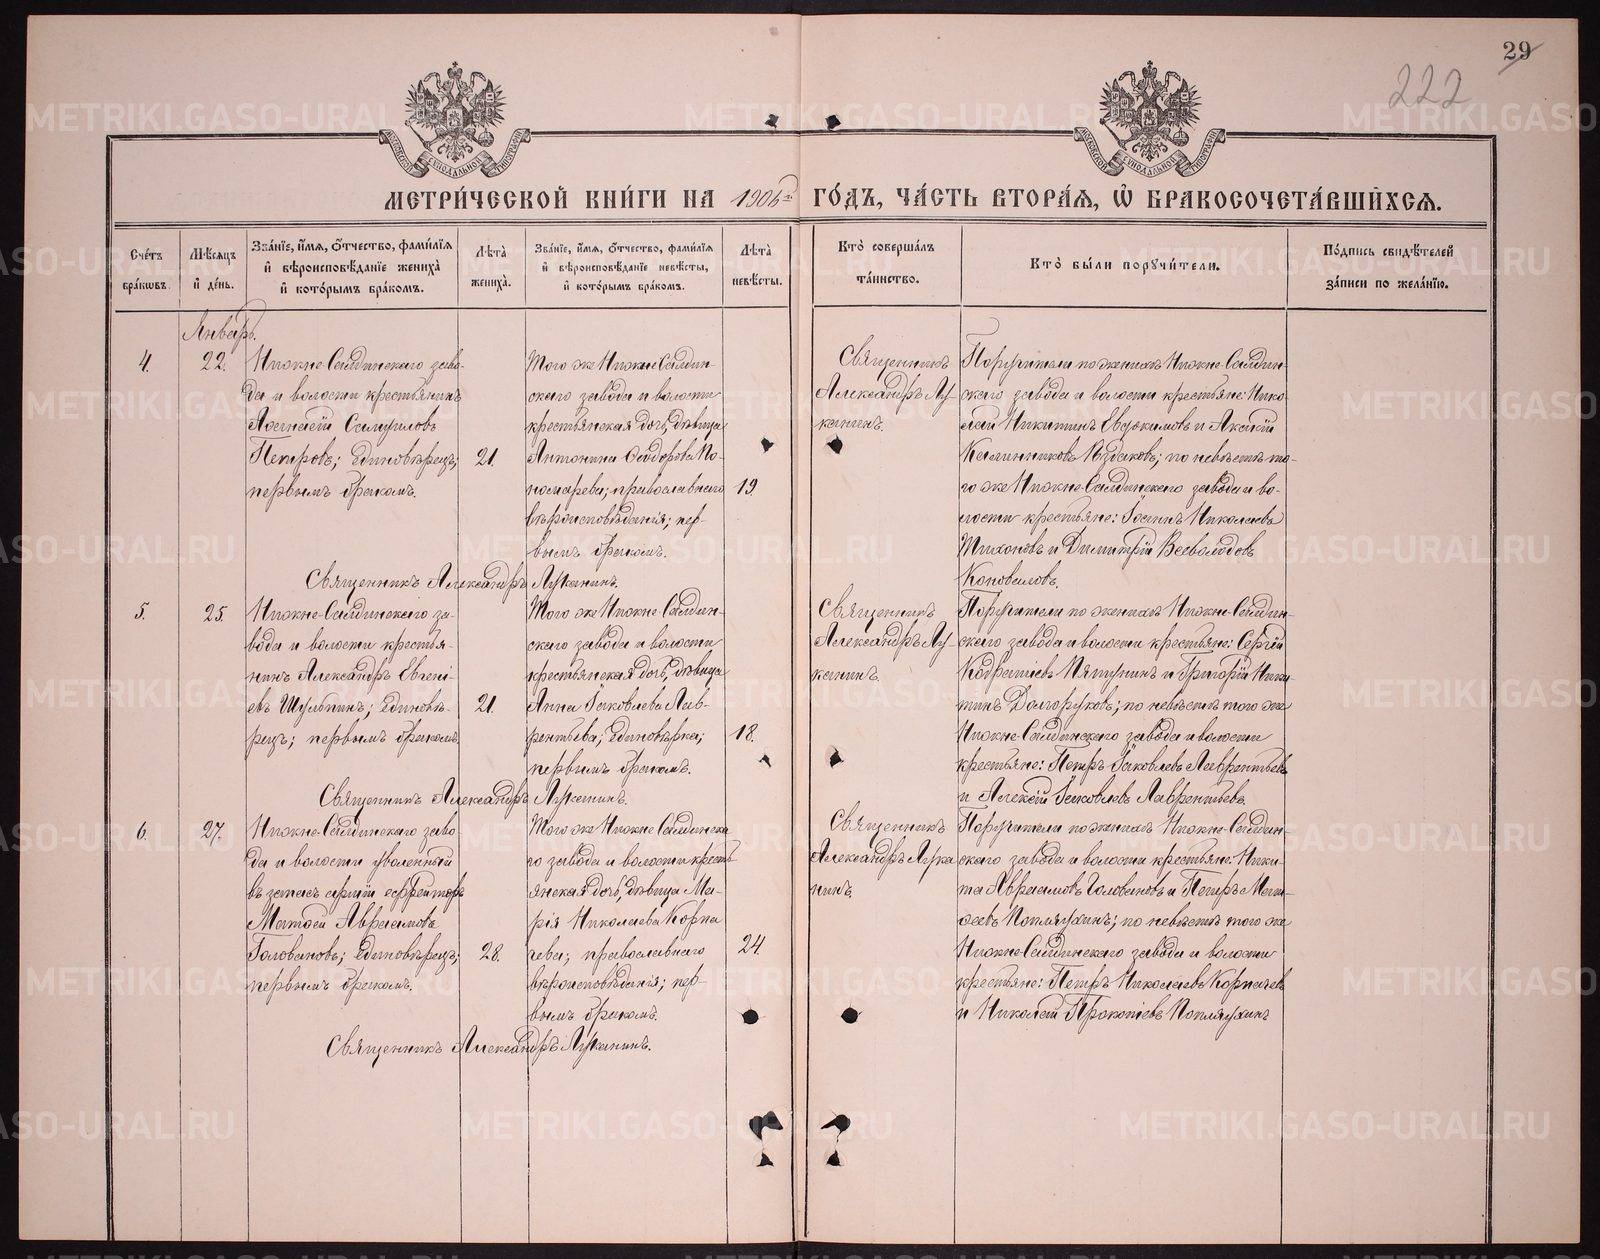 29
222
МЕТРИ́ЧЕСКОЙ КНИ́ГИ НА 1906й ГО́ДЪ, ЧА́СТЬ ВТОРА́Я, Ѡ БРАКОСОЧЕТА́ВШИХСЯ.
Сче́тъ бра́кѡвъ.
Мѣ́сяцъ и де́нь.
Зва́нїе, и́мя, ѻ́тчество, фами́лїя
и вѣроисповѣ́данїе жениха̀
и кото́рымъ бра́комъ.
Лѣта̀ жениха̀.
Зва́нїе, и́мя, ѻ́тчество, фами́лїя
и вѣроисповѣ́данїе невѣ́сты,
и кото́рымъ бра́комъ.
Лѣта̀ невѣ́сты.
Кто̀ соверша́лъ
та́инство.
Кто̀ бы́ли порꙋчи́тели.
По́дпись свидѣ́телей
за́писи по жела́нїю.
Январь.
4.
22.
Нижне-Салдинскаго заво-
да и волости крестьянинъ
Самуиловъ
Петровъ; единовѣрецъ;
первымъ бракомъ.
21.
Того же Нижне-Салдин-
скаго завода и волости
крестьянская дочь, дѣвица
Антонина Ѳеодорова По-
номарева; православнаго
вѣроисповѣданія; пер-
вымъ бракомъ.
19.
Священникъ
Александръ Лу-
канинъ.
Поручители по женихѣ Нижне-Салдин-
скаго завода и волости крестьяне: Нико-
лай Никитинъ Евдокимовъ и
по невѣстѣ то-
го же Нижне-Салдинскаго завода и во-
лости крестьяне: Іоаннъ Николаевъ
Тихоновъ и Димитрій Всеволодовъ
Коноваловъ.
Священникъ Александръ Луканинъ.
5.
25.
Нижне-Салдинскаго за-
вода и волости крестья-
нинъ Александръ Евгені-
евъ Шульпинъ; единовѣ-
рецъ; первымъ бракомъ.
21.
Того же Нижне-Салдин-
скаго завода и волости
крестьянская дочь, дѣвица
Анна Іаковлева Лав-
рентьева; единовѣрка;
первымъ бракомъ.
18.
Священникъ
Александръ Лу-
канинъ.
Поручители по женихѣ Нижне-Салдин-
скаго завода и волости крестьяне: Сергій
Пятунинъ и Григорій Ники-
тинъ Долгоруковъ; по невѣстѣ того же
Нижне-Салдинскаго завода и волости
крестьяне: Петръ Іаковлевъ Лаврентьевъ
и Алексій Іаковлевъ Лаврентьевъ.
Священникъ Александръ Луканинъ.
6.
27.
Нижне-Салдинскаго заво
да и волости уволенный
въ запасъ арміи ефрейторъ
Матѳей Авраамовъ
Головановъ; единовѣрецъ;
первымъ бракомъ.
28.
Того же Нижне Салдинска
го завода и волости кресть
янская дочь, дѣвица Ма-
рія Николаева Корпа
чева; православнаго
вѣроисповѣданія; пер-
вымъ бракомъ.
24.
Священникъ
Александръ Лука
нинъ.
Поручители по женихѣ Нижне-Салдин-
скаго завода и волости крестьяне: Ники-
та Авраамовъ Головановъ и Петръ Мат-
ѳеевъ Поплаухинъ; по невѣстѣ того же
Нижне-Салдинскаго завода и волости
крестьяне: Петръ Николаевъ Корпачевъ
и Николай Прокопіевъ Поплаухинъ
Священникъ Александръ Луканинъ.
METRIKI.GASO-URAL.RU